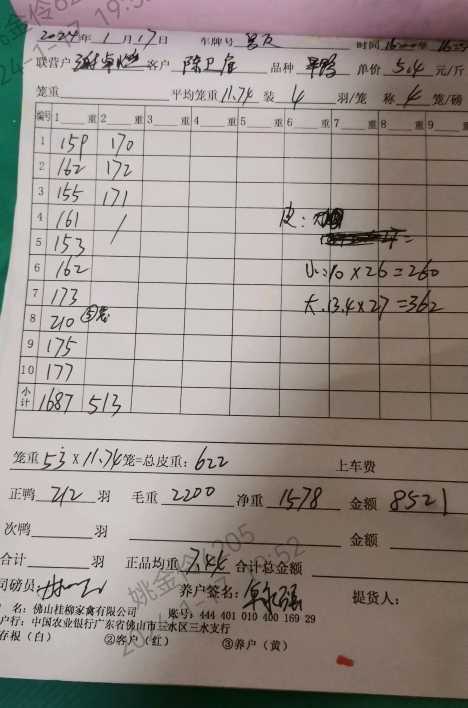 2024年 1 月 17 日 车牌号 时间 16:00
联营户 客户 陈卫 品种 单价 5.4 元/斤
笼重 平均笼重 11.74 装 4 羽/笼 称 4 笼/磅
编号 1 重 2 重 3 重 4 重 5 重 6 重 7 重 8 重 9 重
1 159 170
2 162 172
3 155 171
4 161 /
皮:
5 153
6 162 小:10×26=260
7 173 大:13.4×27=362
8 210
9 175
10 177
小计 1687 513
笼重 53×11.74 笼=总皮重:622 上车费
正鸭 212 羽 毛重 2200 净重 1578 金额 8521
次鸭 羽 金额
合计 羽 正品均重 7.44 合计总金额
司磅员: 养户签名: 提货人:
名:佛山桂柳家禽有限公司 账号:444 401 010 400 169 29
户行:中国农业银行广东省佛山市三水区三水支行
存根(白) ②客户(红) ③养户(黄)